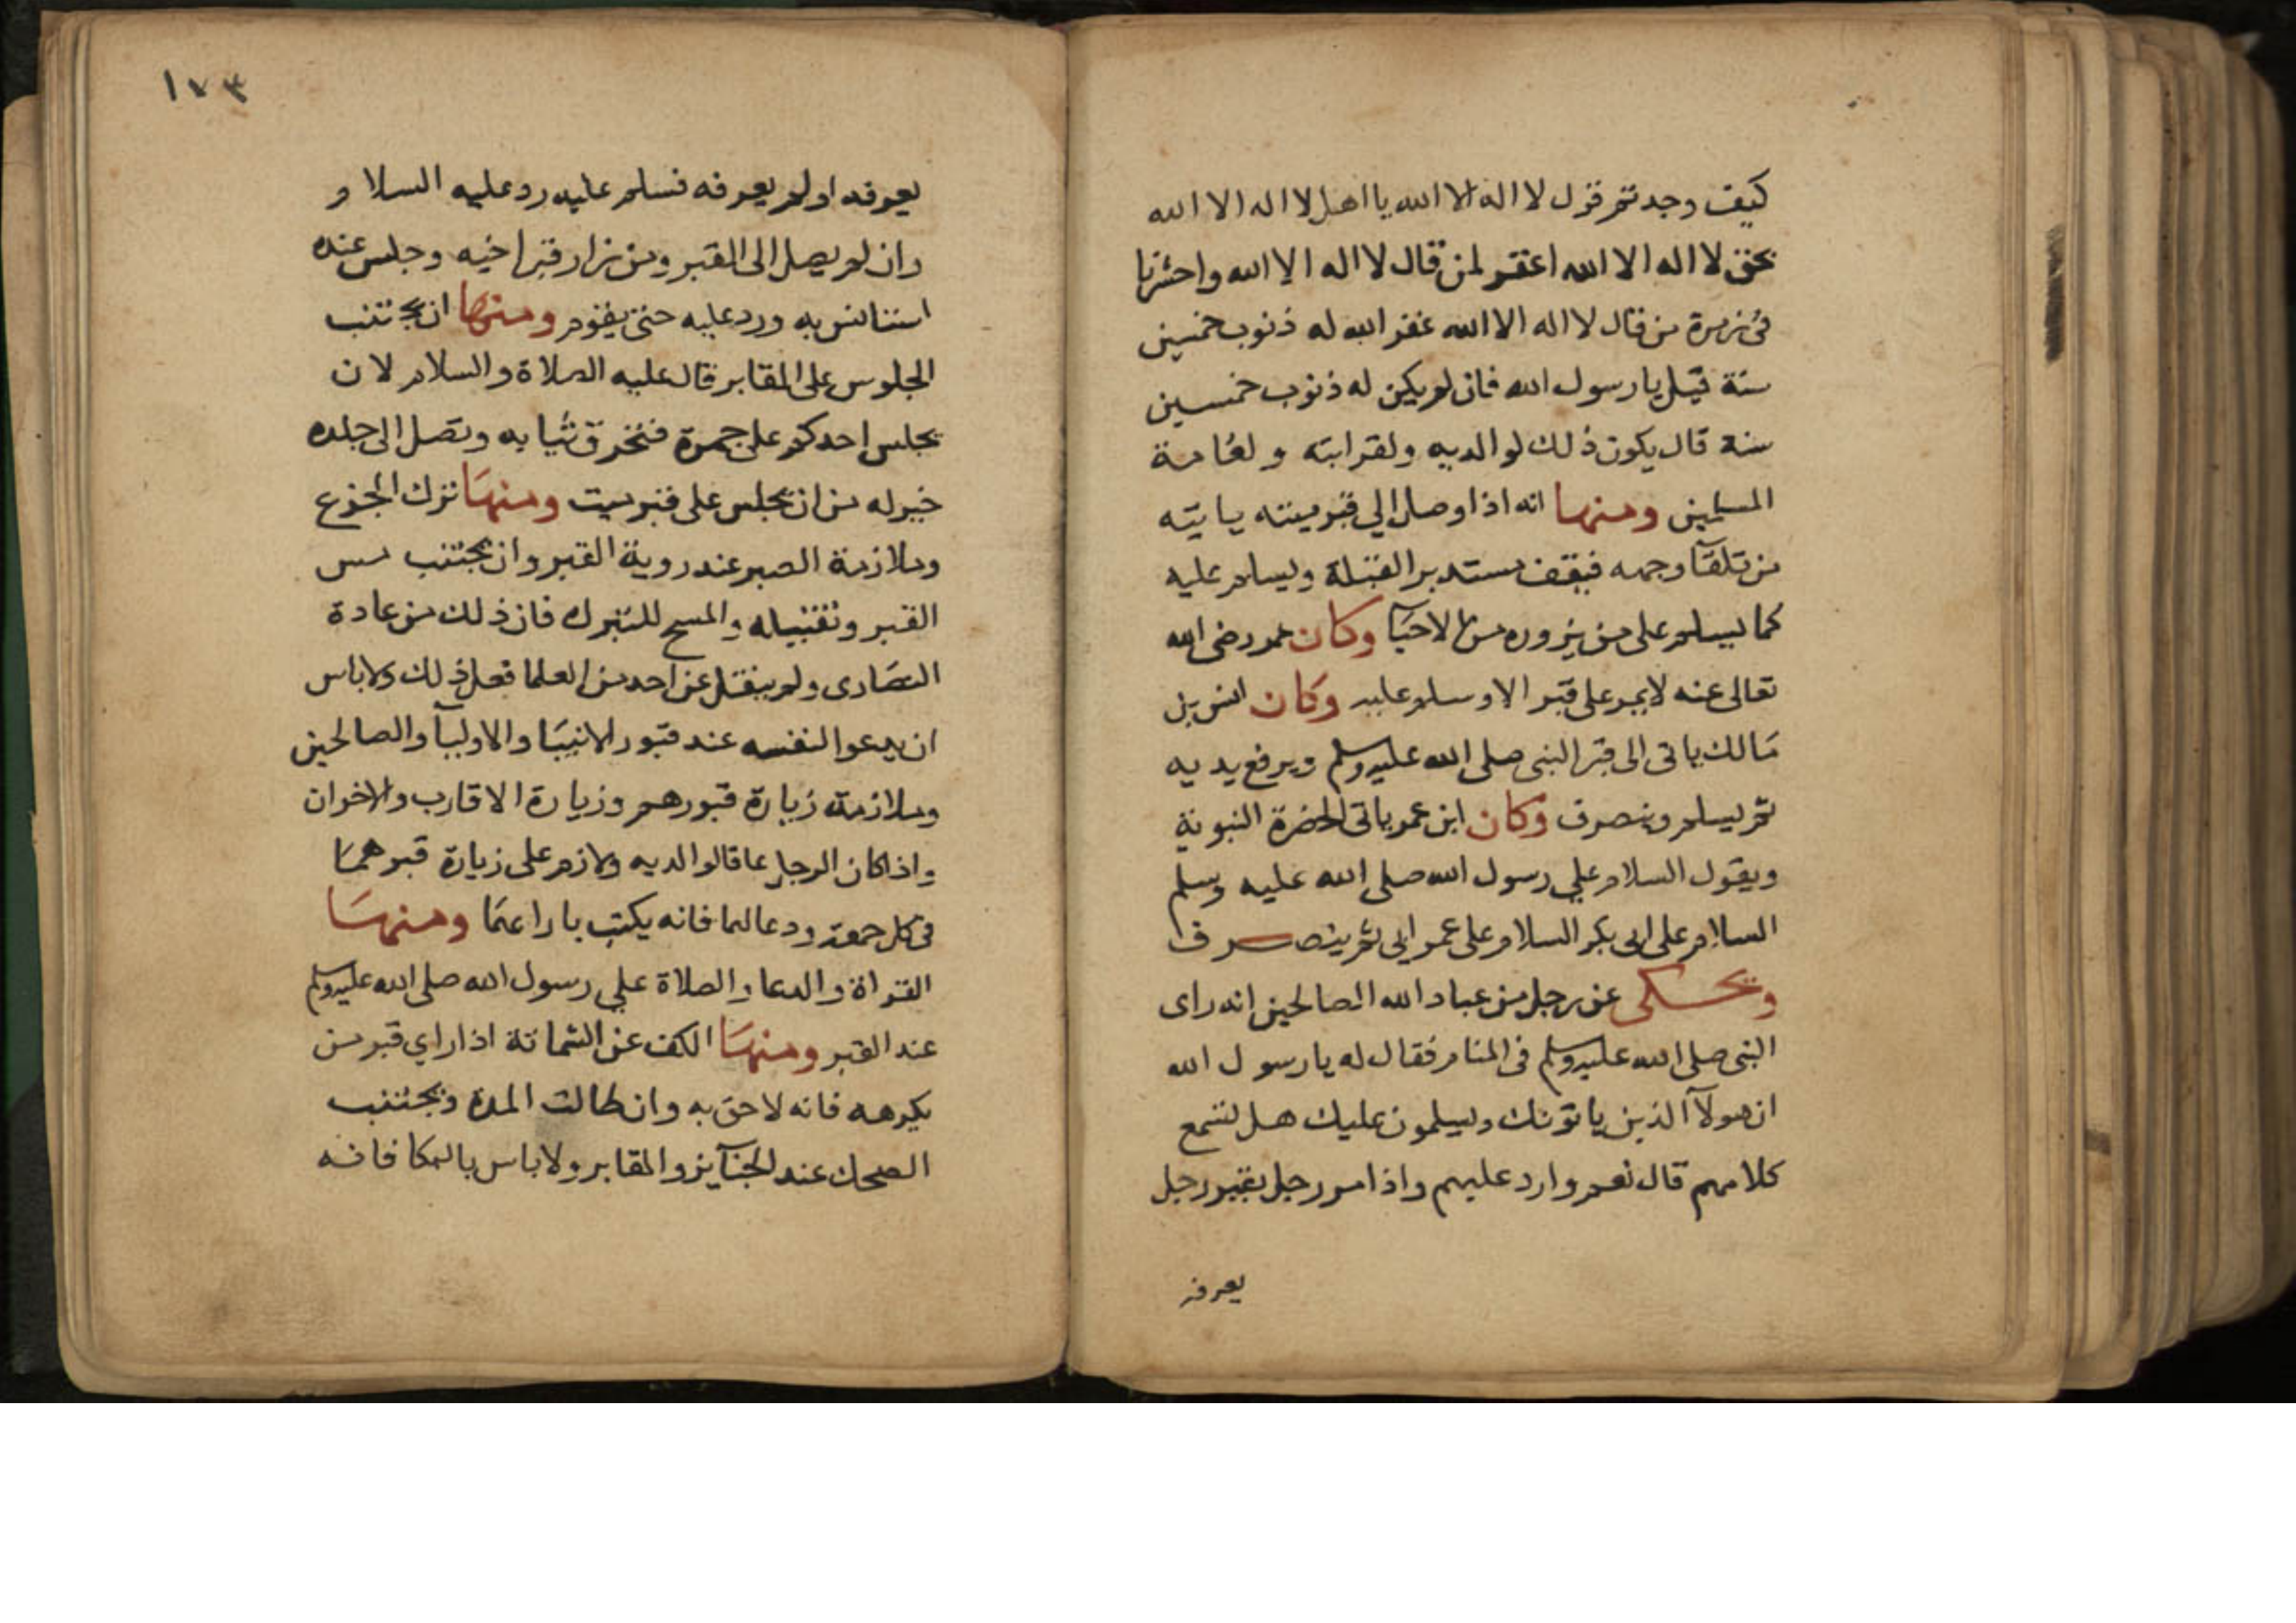 كيف وجدتم قول لا اله الا الله يا اهل لا اله الا الله
بحق لا اله الا الله اغفر لمن قال لا اله الا الله واحشرنا
في زمرة من قال لا اله الا الله غفر الله له ذنوب خمسين
سنة قيل يا رسول الله فان لم يكن له ذنوب خمسين
سنة قال يكون ذلك لوالديه ولقرابته ولعامة
المسلمين ومنها انه اذا وصل الي قبر ميته ياتيه
من تلقآ وجهه فيقف مستدبر القبلة ويسلم عليه
كما يسلم على من يزوره من الاحيآ وكان عمر رضى الله
تعالى عنه لا يمر على قبر الا وسلم عليه وكان انس بن
مالك ياتى الى قبر النبى صلى الله عليه وسلم ويرفع يديه
ثم يسلم وينصرف وكان ابن عمر ياتى الحضرة النبوية
ويقول السلام علي رسول الله صلى الله عليه وسلم
السلام على ابى بكر السلام على عمر ابى ثم ينصرف
ويحكى عن رجل من عباد الله الصالحين انه راى
النبى صلى الله عليه وسلم فى المنام فقال له يا رسول الله
ان هولآ الذين ياتونك ويسلمون عليك هل تسمع
كلامهم قال نعم وارد عليهم واذا مر رجل بقبر رجل
يعرفه
١٧٣
يعرفه او لم يعرفه فسلم عليه رد عليه السلام
وان لم يصل الى القبر ومن زار قبر اخيه وجلس عنده
استانس به ورد عليه حتى يقوم ومنها ان يجتنب
الجلوس على المقابر قال عليه الصلاة والسلام لان
يجلس احدكم على جمرة فتخرق ثيابه وتصل الى جلده
خير له من ان يجلس على قبر ميت ومنها ترك الجزع
وملازمة الصبر عند روية القبر وان يجتنب مس
القبر وتقبيله والمسح للتبرك فان ذلك من عادة
النصارى ولم ينقل عن احد من العلما فعل ذلك ولا باس
ان يدعوا لنفسه عند قبور الانبيا والاوليآ والصالحين
وملازمة زيارة قبورهم وزيارة الاقارب والاخوان
واذا كان الرجل عاقا لوالديه ولازم على زيارة قبرهما
فى كل جمعة ودعا لهما فانه يكتب بارا عما ومنها
القراة والدعا والصلاة علي رسول الله صلى الله عليه وسلم
عند القبر ومنها الكف عن الشماتة اذا راي قبر من
يكرهه فانه لاحق به وان طالت المدة ويجتنب
الضحك عند الجنآيز والمقابر ولا باس بالبكا فانه